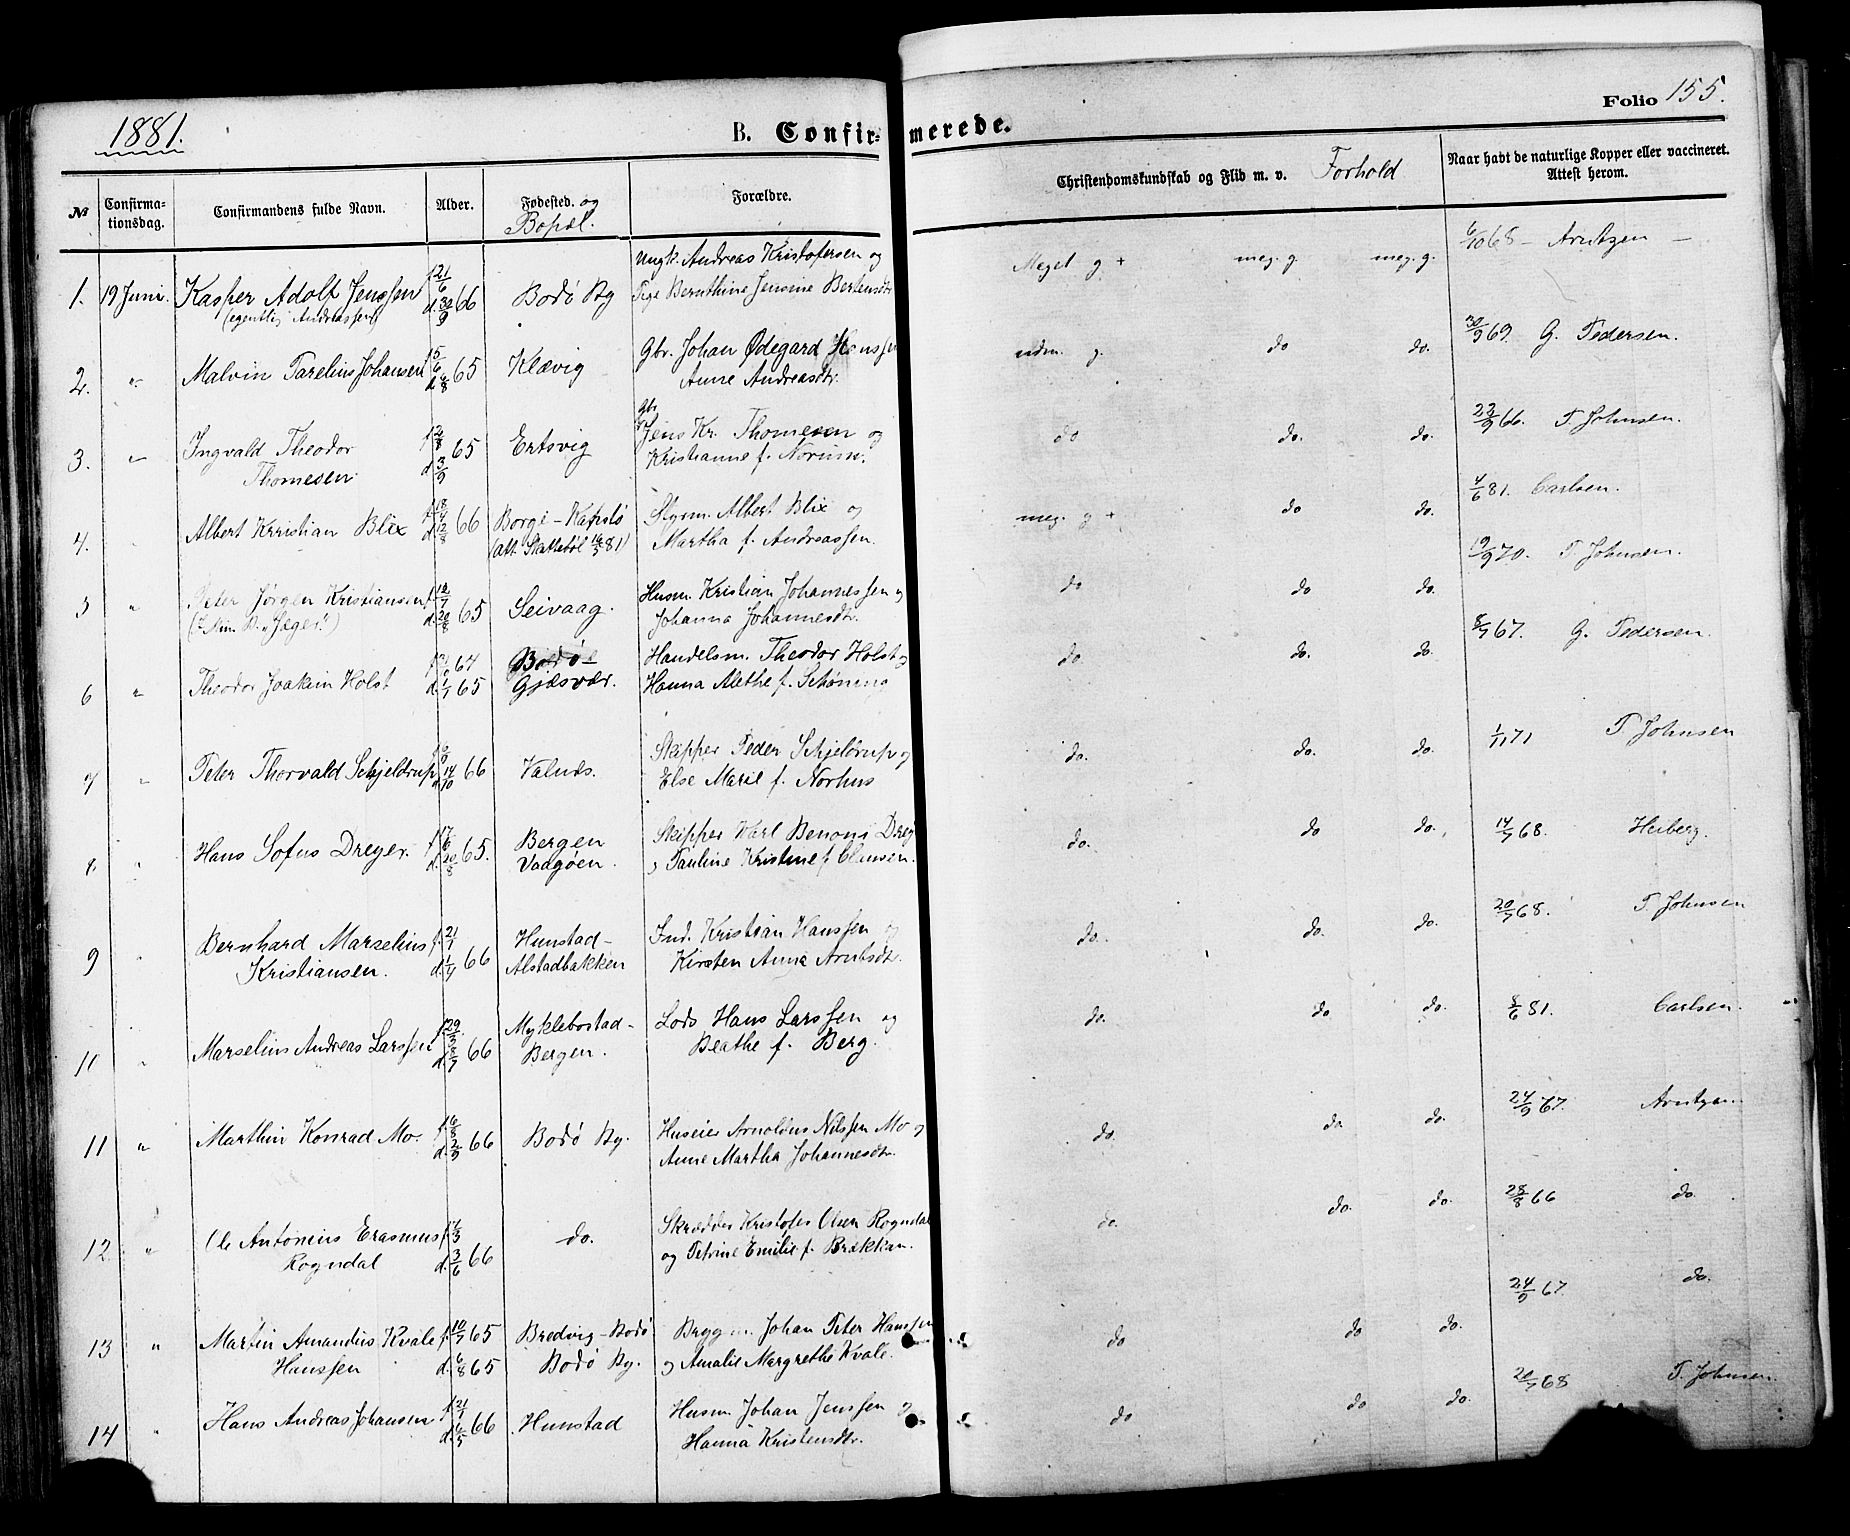 1881.
B. Confirmerede.
Folio 155.
№
Confirmationsdag.
Confirmandens fulde Navn.
Alder.
Fødested. og Bopæl.
Forældre.
Christendomskundskab og Flid m. v. Forhold
Naar havt de naturlige Kopper eller vaccineret. Attest herom.
1. 19 Juni. Kasper Adolf Jenssen f. 21/6 66 Bodø By Ungk. Andreas Kristofersen og Meget g + meg. g. meg. g. 6/10 68 - Arntzen -
(egentlig Andreassen) d. 30/9 Pige Bernthine Jensine Berentsdtr
2. " Malvin Parelius Johansen 65 Klævig Gbr. Johan Ødegard Hansen udm. g. do do. 30/9 69. G. Pedersen.
Anne Andreasdtr.
3. " Ingvald Theodor 65 Ertsvig Gbr Jens Kr. Thomesen og do do. do. 23/9 66. P. Johnsen.
Thomesen d. 3/9 Kristianne f. Norum.
4. Albert Krristian Blix f. 18/4 66 Borge - Kapslø Styrm. Albert Blix og meg. g + do do. 4/6 81. Carlsen.
d. 12/8 (att. 81) Martha f. Andreassen.
5 " Peter Jørgen Kristiansen 65 Seivaag. Husm. Kristian Johannessen og do do do. 19/9 70. P. Johnsen.
d. 20/8 Johanna Johannesdtr.
6 " Theodor Joakim Holst 64 Bodø - Handelsm. Theodor Holst og do do. do. 8/7 67. G. Pedersen.
d. 1/7 65 Gjæsvær. Hanna Alethe f. Schøning
7 " Peter Thorvald Schjeldrup 66 Valnæs. Skipper Peder Schjeldrup og do. do. do. 1/11 71 P Johnsen
d. 14/10 Else Marie f. Norhus
8. " Hans Sofus Dreyer. f. 17/6 65. Bergen Skipper Karl Benoni Drey do. do do. 14/7 68. Heiberg.
d. 20/8 Vaagøen. og Pauline Kristine f Clausen.
9 " Bernhard Marselius f. 21/1 66 Hunstad - Ind. Kristian Hanssen og do. do. do. 20/7 68. P. Johnsen
Kristiansen. d. 1/4 Alstadbakken Kirsten Anna Arntsdtr.
11 " Marselius Andreas Larssen 66 Myklebostad - Lods Hans Larssen og do. do do. 8/6 81. Carlsen.
Bergen. Beathe f. Berg.
11 " Marthin Konrad Mo. 66 Bodø By. Huseier Arnoldus Nilssen Mo og do. do. do. 24/9 67. Arntzen.
Anne Martha Johannesdtr.
12. " Ole Antonius Erasmus do. Skrædder Kristofer Olsen Rogndal do. do. do. 28/8 66 do.
Rogndal d. 3/6 66 og Petrine Emilie f. Brækkan.
13 " Martin Amandus Kvale f. 10/7 65 Bredvig - Bodø Brygg m. Johan Peter Hanssen do do do. 24/9 67 do.
Hanssen d. 6/8 65 Bodø By. og Amalie Margrethe Kvale.
14 " Hans Andreas Johansen f. 21/1 66 Hunstad Husm. Johan Jenssen og do do do. 20/7 68 P. Johnsen.
Hanna Kristensdtr.